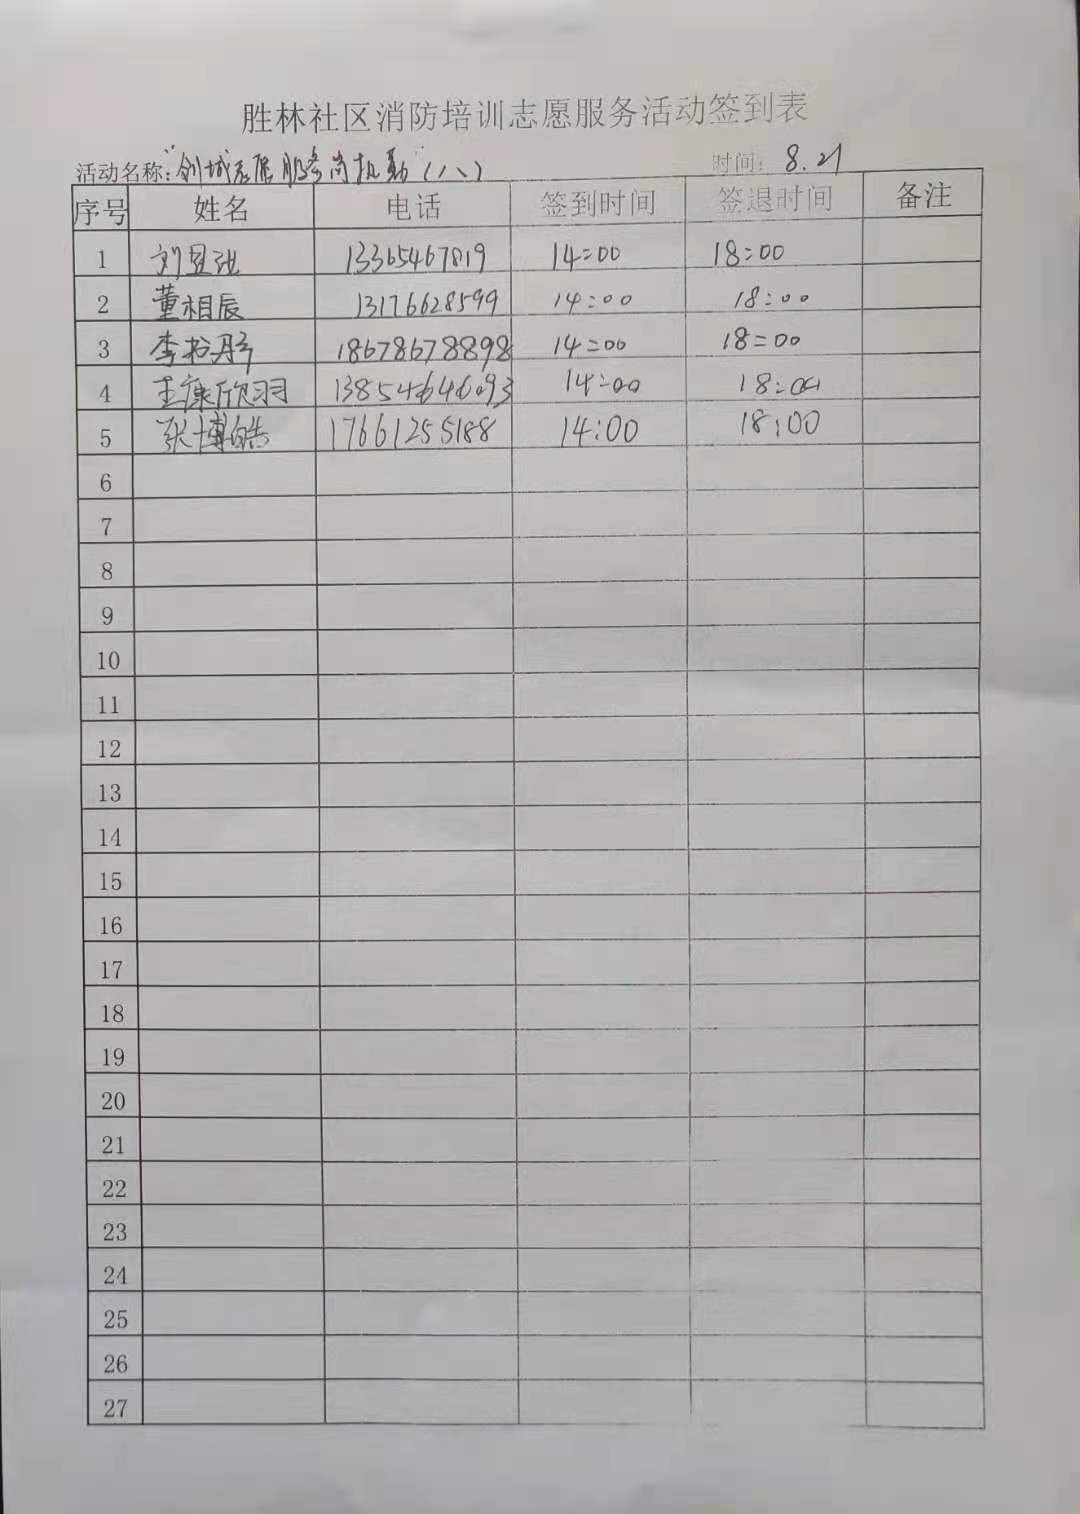 胜林社区消防培训志愿服务活动签到表
活动名称:"创城志愿服务岗执勤"(八) 时间: 8.21
序号 姓名 电话 签到时间 签退时间 备注
1 刘昱 13365467819 14:00 18:00
2 董相辰 13176628599 14:00 18:00
3 李 18678678898 14:00 18:00
4 王康欣羽 13854646093 14:00 18:00
5 张博皓 17661255188 14:00 18:00
6
7
8
9
10
11
12
13
14
15
16
17
18
19
20
21
22
23
24
25
26
27